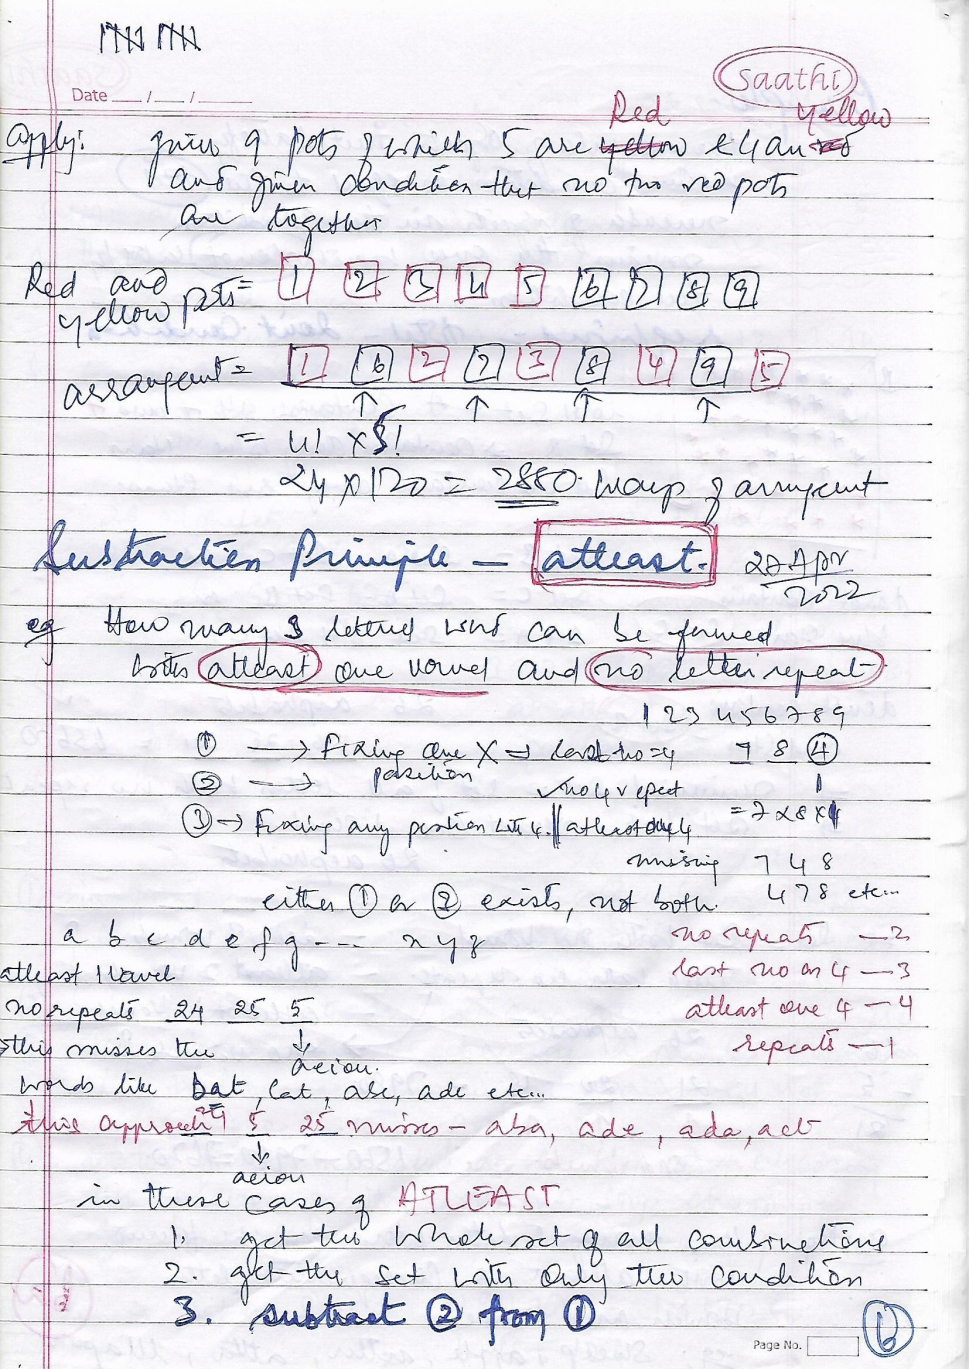 saathi
Date ___/___/______
Red yellow
apply: given 9 pots of which 5 are yellow & 4 are red
and given condition that no two red pots
are together
Red and yellow pots = 1 2 3 4 5 6 7 8 9
arrangent = 1 6 2 7 3 8 4 9 5
↑ ↑ ↑ ↑
= 4! × 5!
24 × 120 = 2880 ways of arrangent
Subtraction Principle — atleast. 28 Apr
2022
eg How many 3 lettered word can be formed
with atleast one vowel and no letter repeat
1 2 3 4 5 6 7 8 9
① → Fixing one X → last no = 4 7 8 ④
② → position no 4 repeat 1
③ → Fixing any position with 4. || atleast one 4 = 7×8×1
missing 7 4 8
either ① or ② exists, not both. 4 7 8 etc...
a b c d e f g --- x y z no repeats — 2
atleast 1 vowel last no as 4 — 3
no repeats 24 25 5 atleast one 4 — 4
this misses the ↓ repeats — 1
aeiou.
words like bat, cat, abc, ade etc...
this approach 24 5 25 misses - aba, ade, ada, act
↓
aeiou
in these cases of ATLEAST
1. get the whole set of all combinations
2. get the set with only the condition
3. subtract ② from ①
Page No.
6